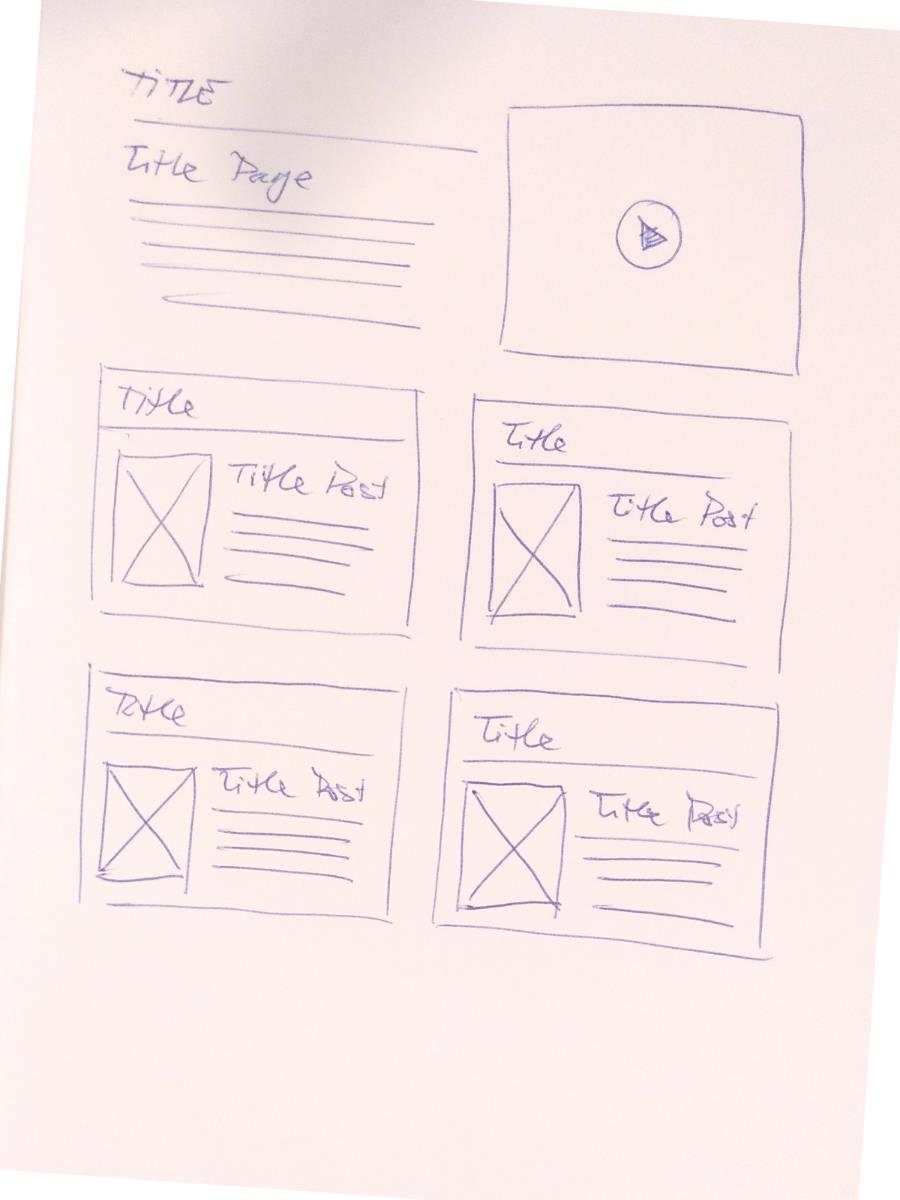 TITLE
Title Page
Title
Title Post
Title
Title Post
Title
Title Post
Title
Title Post